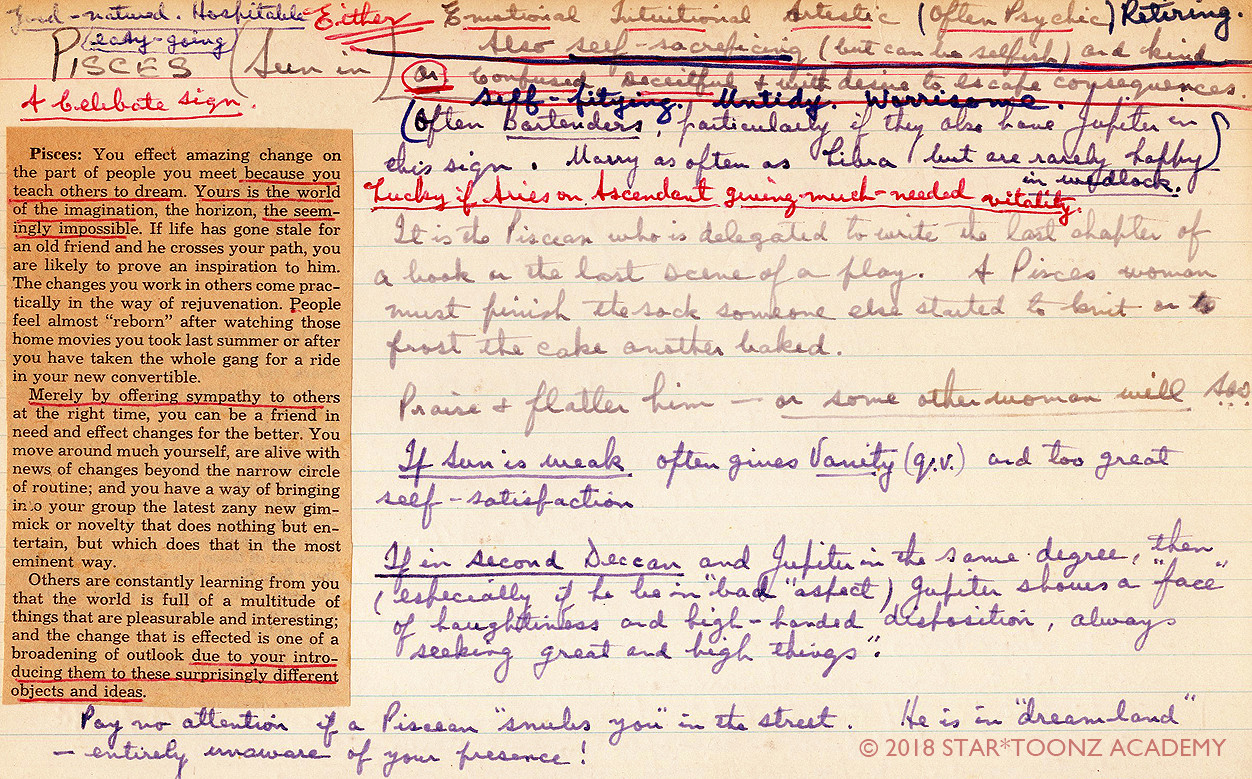 Good-natured. Hospitable Either Emotional Intuitional Artestic (Often Psychic) Retiring.
easy-going
PISCES (Sun in) Also self-sacreficing (but can be selfish) and kind
or Confused deceitful & with desire to escape consequences.
A Celibate sign. self-pitying. Untidy. Worrisome.
(Often Bartenders, particularly if they also have Jupiter in
this sign. Marry as often as Libra but are rarely happy)
in wedlock.
Lucky if Aries on Ascendant giving much-needed vitality.
Pisces: You effect amazing change on
the part of people you meet because you
teach others to dream. Yours is the world
of the imagination, the horizon, the seem-
ingly impossible. If life has gone stale for
an old friend and he crosses your path, you
are likely to prove an inspiration to him.
The changes you work in others come prac-
tically in the way of rejuvenation. People
feel almost "reborn" after watching those
home movies you took last summer or after
you have taken the whole gang for a ride
in your new convertible.
Merely by offering sympathy to others
at the right time, you can be a friend in
need and effect changes for the better. You
move around much yourself, are alive with
news of changes beyond the narrow circle
of routine; and you have a way of bringing
into your group the latest zany new gim-
mick or novelty that does nothing but en-
tertain, but which does that in the most
eminent way.
Others are constantly learning from you
that the world is full of a multitude of
things that are pleasurable and interesting;
and the change that is effected is one of a
broadening of outlook due to your intro-
ducing them to these surprisingly different
objects and ideas.
It is the Piscean who is delegated to write the last chapter of
a book or the last scene of a play. A Pisces woman
must finish the sock someone else started to knit or to
frost the cake another baked.
Praise & flatter him — or some other woman will
If Sun is weak often gives Vanity (q.v.) and too great
self-satisfaction
If in second Deccan and Jupiter in the same degree, then
(especially if he be in "bad" aspect) Jupiter shows a "face"
of haughtiness and high-handed disposition, always
"seeking great and high things".
Pay no attention if a Piscean "snubs you" in the street. He is in "dream-land"
— entirely unaware of your presence!
© 2018 STAR*TOONZ ACADEMY